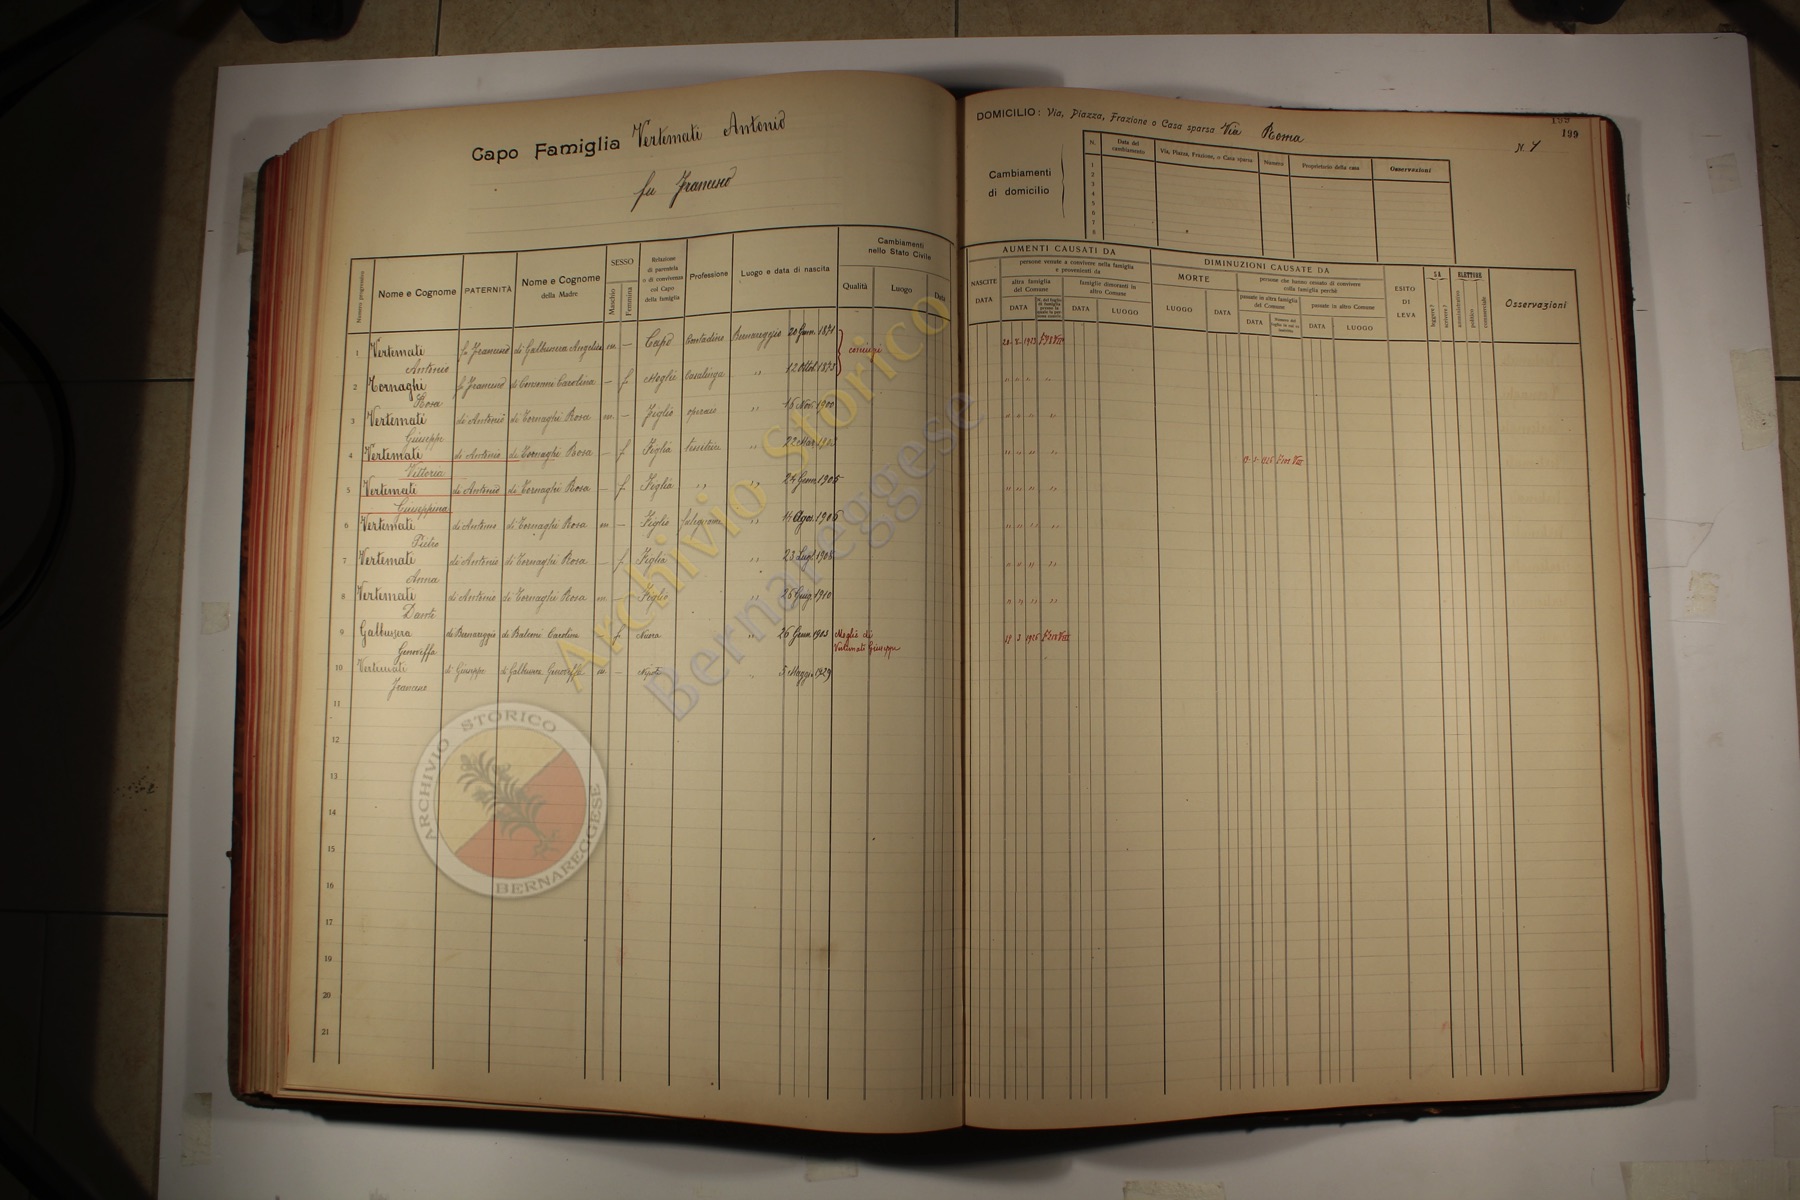 Capo Famiglia Vertemati Antonio
fu Francesco
DOMICILIO: Via, Piazza, Frazione o Casa sparsa Via Roma
N. 7
199
Cambiamenti
di domicilio
N. Data del cambiamento Via, Piazza, Frazione, o Casa sparsa Numero Proprietario della casa Osservazioni
1
2
3
4
5
6
7
8
Numero progressivo Nome e Cognome PATERNITÀ Nome e Cognome della Madre SESSO Maschio Femmina Relazione di parentela o di convivenza col Capo della famiglia Professione Luogo e data di nascita Cambiamenti nello Stato Civile Qualità Luogo Data
AUMENTI CAUSATI DA
NASCITE DATA
persone venute a convivere nella famiglia e provenienti da
altra famiglia del Comune DATA
famiglie dimoranti in altro Comune DATA LUOGO
DIMINUZIONI CAUSATE DA
MORTE LUOGO DATA
persone che hanno cessato di convivere colla famiglia perchè
passate in altra famiglia del Comune DATA
passate in altro Comune DATA LUOGO
ESITO DI LEVA
SA leggere? scrivere?
ELETTORE amministrativo politico commerciale
Osservazioni
1 Vertemati Antonio fu Francesco di Galbusera Angela m. — Capo Contadino Bernareggio 20 Genn. 1871 coniugi
2 Tornaghi Rosa fu Francesco di Consonni Carolina — f Moglie Casalinga " 12 Ottob. 1873
3 Vertemati Giuseppe di Antonio di Tornaghi Rosa m. — Figlio operaio " 16 Nov. 1900
4 Vertemati Vittoria di Antonio di Tornaghi Rosa — f Figlia tessitrice " 22 Mar. 1903
5 Vertemati Giuseppina di Antonio di Tornaghi Rosa — f Figlia " " 24 Genn. 1905
6 Vertemati Pietro di Antonio di Tornaghi Rosa m — Figlio falegname " 14 Agos. 1906
7 Vertemati Anna di Antonio di Tornaghi Rosa — f Figlia " 23 Lugl. 1908
8 Vertemati Dante di Antonio di Tornaghi Rosa m — Figlio " 26 Giug. 1910
9 Galbusera Genoveffa di Bernareggio di Balconi Carolina — f Nuora " 26 Genn. 1903 Moglie di Vertemati Giuseppe
10 Vertemati Francesco di Giuseppe di Galbusera Genoveffa m — Nipote 5 Maggio 1929
11
12
13
14
15
16
17
18
19
20
21
Archivio storico
Bernareggese
ARCHIVIO STORICO
BERNAREGGESE